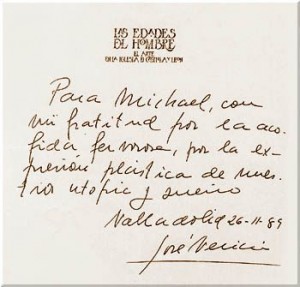 LAS EDADES
DEL HOMBRE
EL ARTE
EN LA IGLESIA DE CASTILLA Y LEON
Para Michael, con
mi gratitud por la aco-
gida fervorosa, por la ex-
presión plástica de nues-
tra utopía y sueño
Valladolid 26-11-89
José